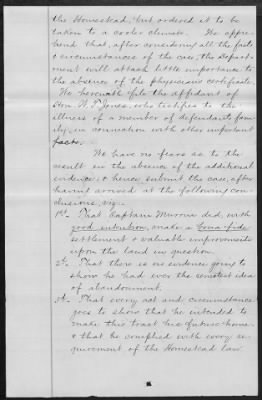 the Homestead, but ordered it to be
taken to a cooler climate. We appre-
hend that, after considering all the facts
& circumstances of the case, the Depart-
ment will attach little importance to
the absence of the physicians certificate
We herewith file the affidavit of
Hon. W. P. Jones, who testifies to the
illness of a member of defendants fam-
ily, in connection with other important
facts.
We have no fears as to the
result in the absence of the additional
evidence; & hence submit the case, after
having arrived at the following con-
clusions, viz:
1st. That Captain did, with
good intention, made a bona-fide
settlement & valuable improvements
upon the land in question.
2d. That there is no evidence going to
show he had ever the remotest idea
of abandonment.
3d. That every act and circumstance
goes to show that he intended to
make this tract his future home
& that he complied with every re-
quirement of the Homestead law